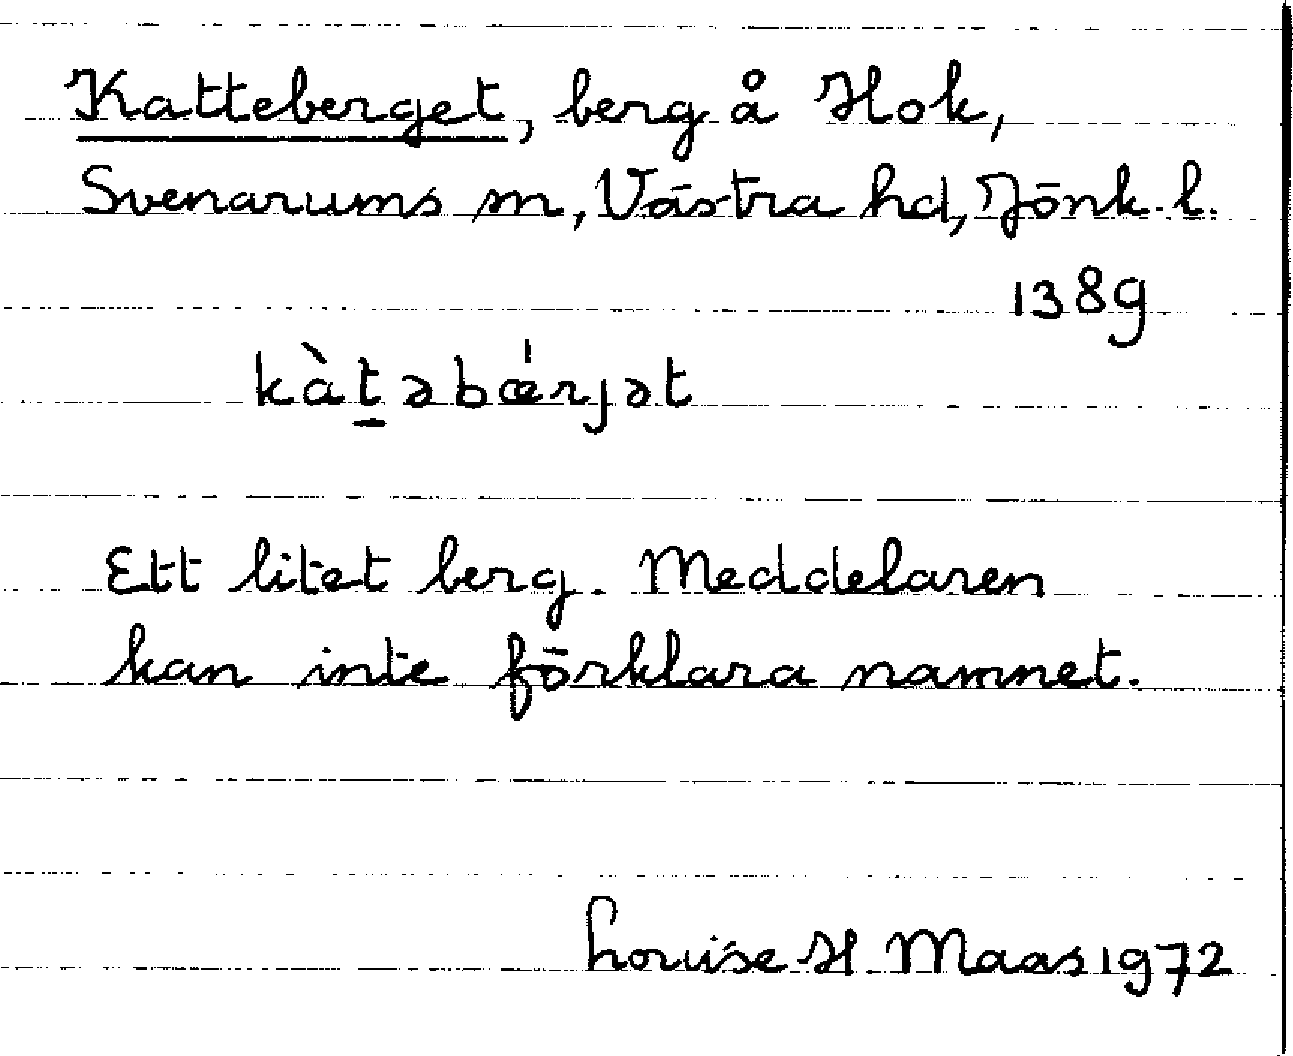 Katteberget, berg å Hok,
Svenarums sn, Västra hd, Jönk. l.
1389
kàt̠əbǿrjət
Ett litet berg. Meddelaren
kan inte förklara namnet.
Louise H. Maas 1972